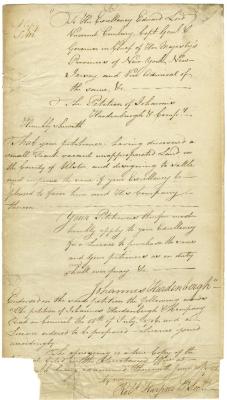 To his Excellency Edward Lord
Viscount Cornbury Capt Genl &
Governor in Chief of Her Majesty's
Provinces of New York, New
Jersey and Vice Admiral of
the same, &c
The Petition of Johannes
Hardenbergh & Compy
Humbly Sheweth
That your petitioner having discovered a
small Tract vacant unappropriated Land in
the County of Ulster and designing to settle
and improve the same if your Excellency be
pleased to favor him and His Company
therein
Your Petitioner therefore most
humbly apply to your Excellency
for a License to purchase the same
and your petitioners as in duty
shall ever pray &c
Johannes Hardenbergh
Endorsed on the said petition the following words
The petition of Johannes Hardenbergh & Company
Read in Council the 18th of July, and a
License ordered to be prepared License signed
accordingly
The foregoing is a true Copy of the
Robt Harpur